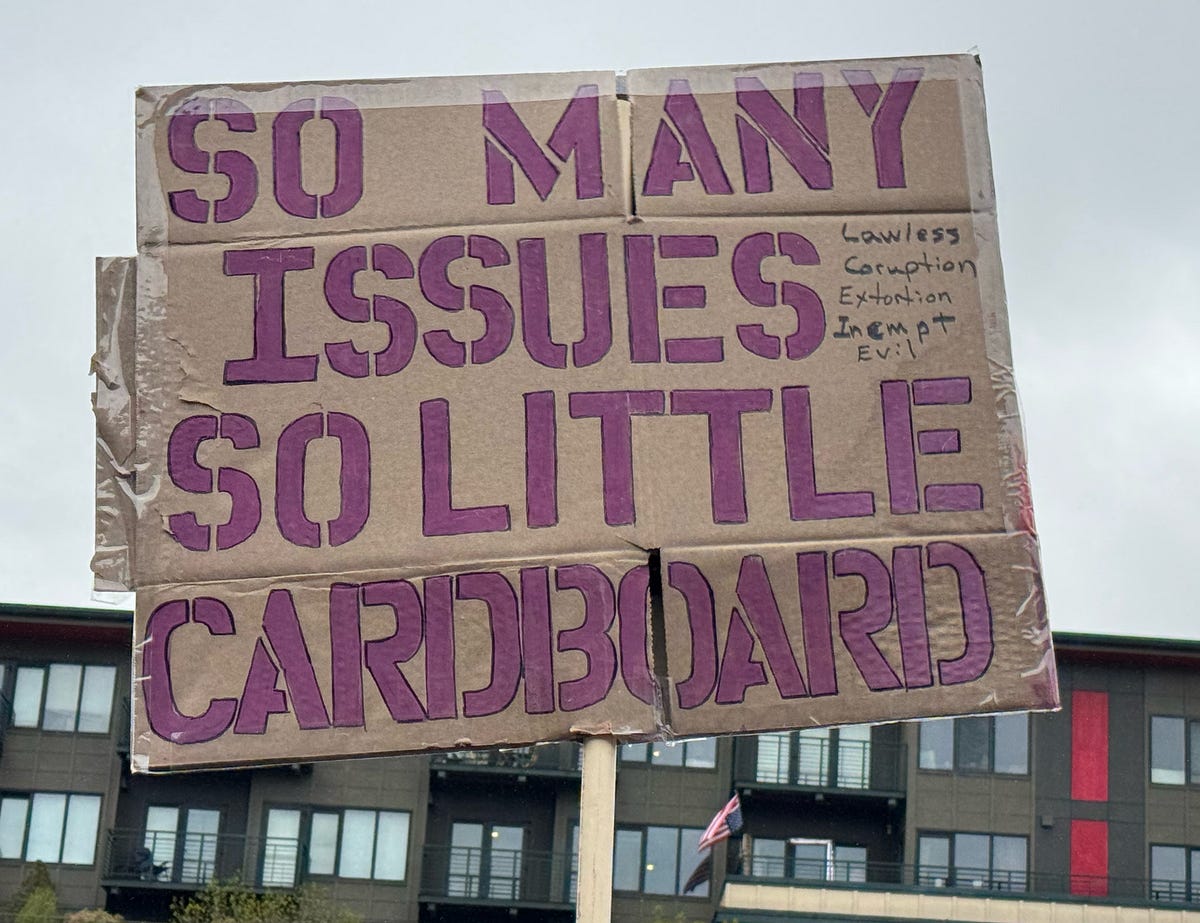 SO MANY
ISSUES
Lawless
Coruption
Extortion
Inempt
Evil
SO LITTLE
CARDBOARD